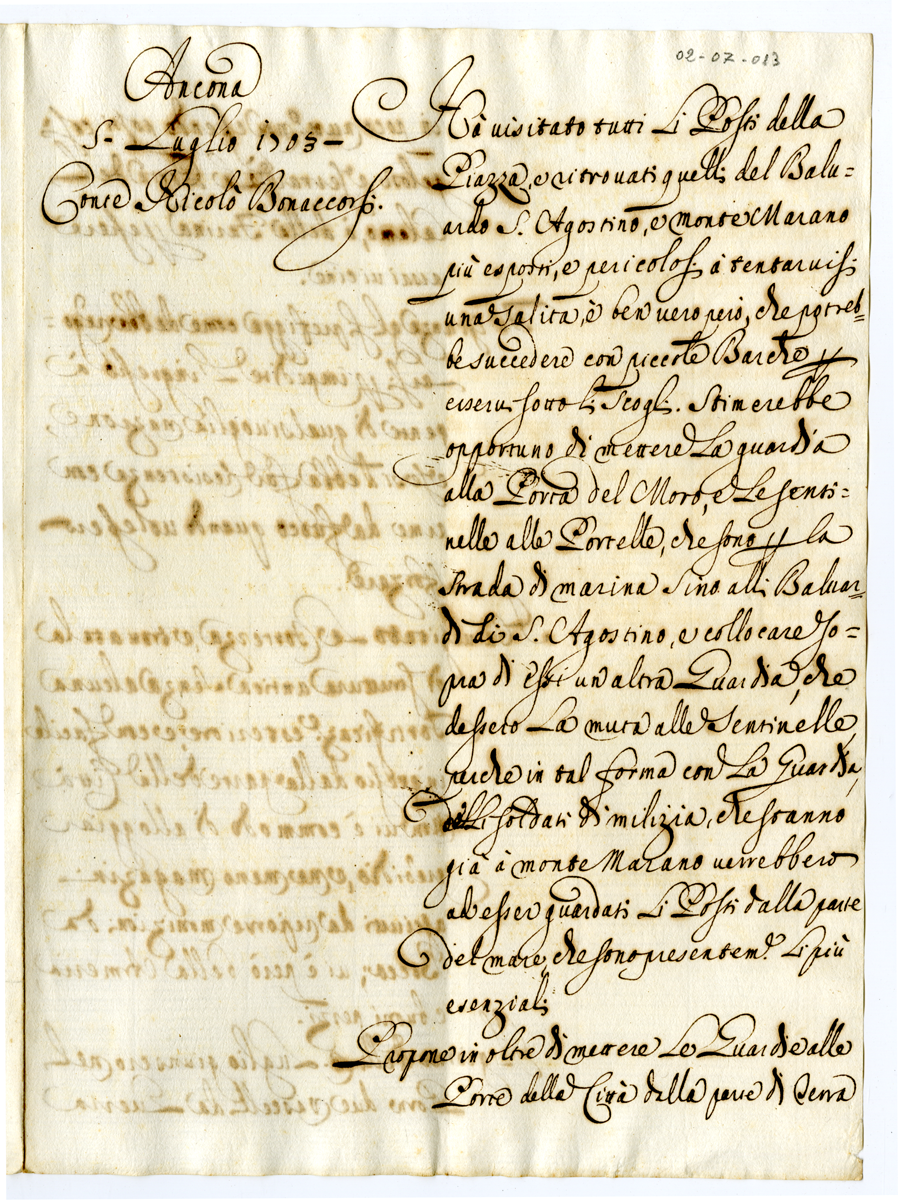 02-07-013
Ancona
5- Luglio 1703-
Conte Nicolò Bonaccorsi.
Hà visitato tutti Li Posti della
Piazza, e ritrovati quelli del Balu=
ardo S. Agostino, e monte Marano
più esposti, e pericolosi à tentarvisi
una salita, è ben vero però, che potreb=
be succedere con piccole Barche
esservi sotto li Scogli. Stimerebbe
opportuno di mettere La guardia
alla Porta del Moro, e Le senti=
nelle alle Portelle, che sono la
strada di marina sino alli Baluar=
di di S. Agostino, e collocare so=
pra di essi un altra Guardia, che
dessero La muta alle Sentinelle,
perche in tal forma con La Guardia,
delli soldati di milizia, che stanno
già à monte Marano verrebbero
ad esser guardati Li Posti dalla parte
del mare, che sono presentem.e Li più
esenziali
Propone in oltre di mettere Le Guardie alle
Porte della Città dalla parte di Terra